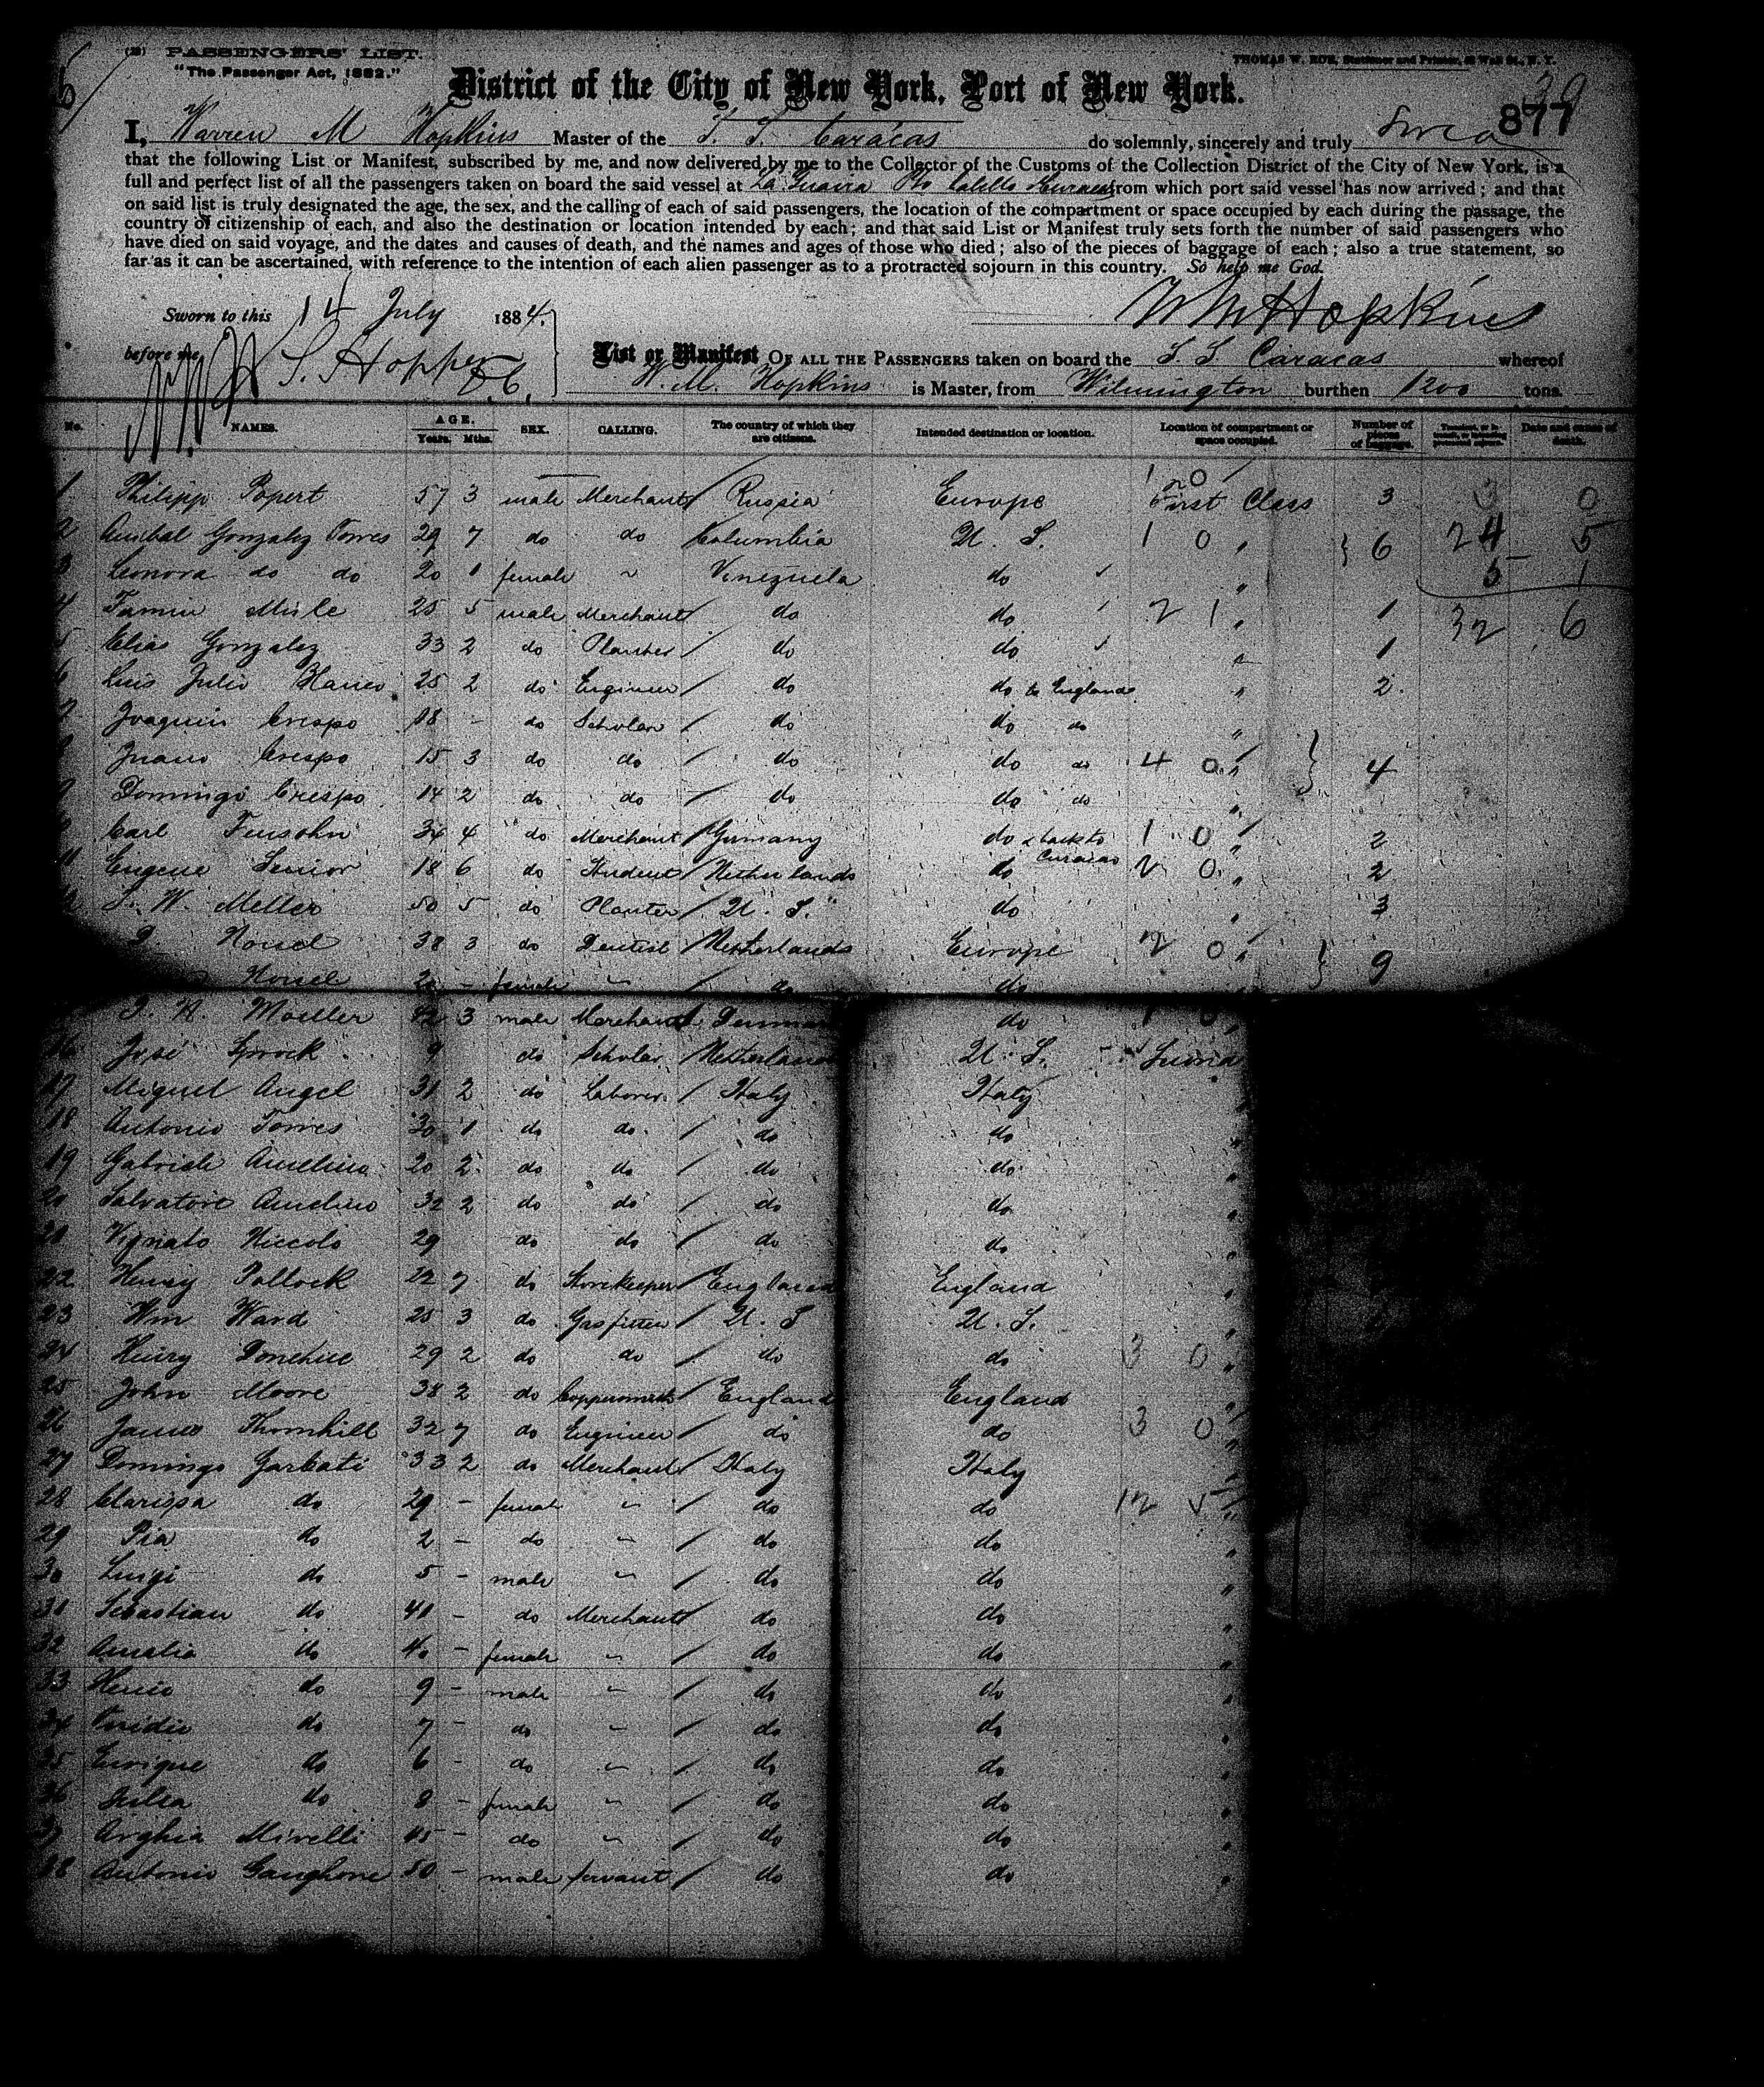 (B) PASSENGERS' LIST.
"The Passenger Act, 1882."
THOMAS W. ROE, Stationer and Printer, Wall St., N. Y.
District of the City of New York, Port of New York.
877
I, Warren M Hopkins Master of the S. S. Caracas do solemnly, sincerely and truly swear
that the following List or Manifest, subscribed by me, and now delivered by me to the Collector of the Customs of the Collection District of the City of New York, is a
full and perfect list of all the passengers taken on board the said vessel at La Guaira Pto Cabello Curacao from which port said vessel has now arrived; and that
on said list is truly designated the age, the sex, and the calling of each of said passengers, the location of the compartment or space occupied by each during the passage, the
country of citizenship of each, and also the destination or location intended by each; and that said List or Manifest truly sets forth the number of said passengers who
have died on said voyage, and the dates and causes of death, and the names and ages of those who died; also of the pieces of baggage of each; also a true statement, so
far as it can be ascertained, with reference to the intention of each alien passenger as to a protracted sojourn in this country. So help me God.
Sworn to this 14 July 1884.
WM Hopkins
before me S. Hopper D.C.
List or Manifest OF ALL THE PASSENGERS taken on board the S. S. Caracas whereof
W. M. Hopkins is Master, from Wilmington burthen 1200 tons.
No. NAMES. AGE. Years. Mths. SEX. CALLING. The country of which they are citizens. Intended destination or location. Location of compartment or space occupied. Number of pieces of baggage. Date and cause of death.
1 Philipp Popert 57 3 male Merchant Russia Europe First Class 3
2 Anibal Gonzalez Torres 29 7 do do Columbia U. S. 1 0 " 6 24 5
3 Leonora do do 20 1 female ~ Venezuela do "
4 Misle 25 5 male Merchant do do 2 1 " 1 32 6
5 Elias Gonzalez 33 2 do Planter do do " 1
6 Luis Julio Blanco 25 2 do Engineer do do to England " 2
7 Joaquin Crespo 18 - do Scholar do do do "
8 Juan Crespo 15 3 do do do do do 4 0 " 4
9 Domingo Crespo 14 2 do do do do do "
Carl 34 4 do Merchant Germany do & back to Curacao 1 0 " 2
11 Eugene Senior 18 6 do Student Netherlands do 2 0 " 2
W. Meller 50 5 do Planter U. S. do " 3
38 3 do Dentist Netherlands Europe 2 0 " 9
- female ~ do do
Moeller 3 male Merchant do
16 Jose 9 do Scholar Netherlands U. S.
17 Miguel Angel 31 2 do Laborer Italy Italy
18 Antonio Torres 30 1 do do do do "
19 20 2 do do do do "
20 Salvatore 32 2 do do do do "
21 Niccolo 29 do do do do "
22 Henry Pollock 22 7 do Storekeeper England England "
23 Wm Ward 25 3 do Gasfitter U. S U. S. "
24 Henry Donehue 29 2 do do do do 3 0 "
25 John Moore 38 2 do Coppersmith England England "
26 James Thornhill 32 7 do Engineer do do 3 0 "
27 Domingo Garbati 33 2 do Merchant Italy Italy
28 Clarissa do 29 - female ~ do do 12 5 "
29 Pia do 2 - do ~ do do "
30 Luigi do 5 - male ~ do do "
31 Sebastian do 41 - do Merchant do do "
32 Amalia do 40 - female ~ do do "
33 do 9 - male ~ do do "
34 do 7 - do ~ do do "
35 Enrique do 6 - do ~ do do "
36 do 8 - female ~ do do "
37 Arghia Mirelli 45 - do ~ do do "
38 Antonio 50 - male servant do do "